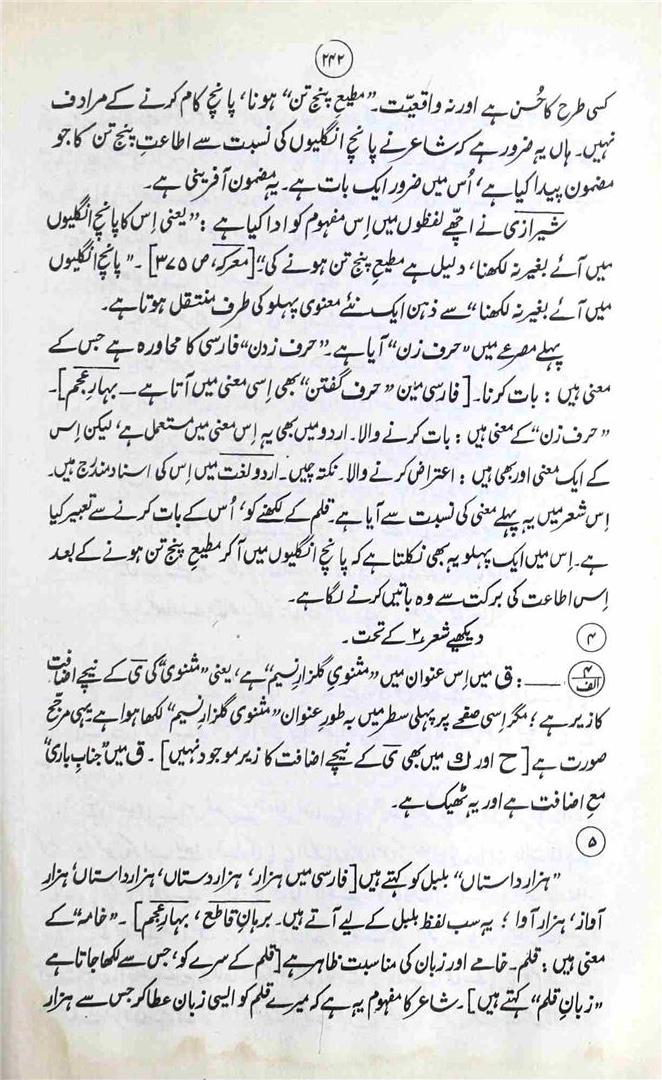 ۲۴۲
کسی طرح کا حُسن ہے اور نہ واقعیّت۔ ”مطیعِ پنج تن“ ہونا، پانچ کام کرنے کے مرادف
نہیں۔ ہاں یہ ضرور ہے کہ شاعر نے پانچ انگلیوں کی نسبت سے اطاعتِ پنج تن کا جو
مضمون پیدا کیا ہے، اُس میں ضرور ایک بات ہے۔ یہ مضمون آفرینی ہے۔
شیرازی نے اچھّے لفظوں میں اِس مفہوم کو ادا کیا ہے : ”یعنی اِس کا پانچ انگلیوں
میں آئے بغیر نہ لکھنا، دلیل ہے مطیعِ پنج تن ہونے کی“ [معرکہ، ص ۳۷۵]۔ ”پانچ انگلیوں
میں آئے بغیر نہ لکھنا“ سے ذہن ایک نئے معنوی پہلو کی طرف منتقل ہوتا ہے۔
پہلے مصرعے میں ”حرف زن“ آیا ہے۔ ”حرف زدن“ فارسی کا محاورہ ہے جس کے
معنی ہیں : بات کرنا۔ [فارسی مین ”حرف گفتن“ بھی اِسی معنی میں آتا ہے — بہارِ عجم]۔
”حرف زن“ کے معنی ہیں : بات کرنے والا۔ اردو میں بھی یہ اِس معنی میں مستعمل ہے، لیکن اِس
کے ایک معنی اور بھی ہیں : اعتراض کرنے والا۔ نکتہ چیں۔ اردو لغت میں اِس کی اسناد مندرج ہیں۔
اِس شعر میں یہ پہلے معنی کی نسبت سے آیا ہے۔ قلم کے لکھنے کو، اُس کے بات کرنے سے تعبیر کیا
ہے۔ اِس میں ایک پہلو یہ بھی نکلتا ہے کہ پانچ انگلیوں میں آ کر مطیعِ پنج تن ہونے کے بعد
اِس اطاعت کی برکت سے وہ باتیں کرنے لگا ہے۔
۴ دیکھیے شعر ۲ کے تحت۔
۴/الف ——: ق میں اِس عنوان میں ”مثنویِ گلزارِ نسیم“ ہے، یعنی ”مثنوی“ کی ی کے نیچے اضافت
کا زیر ہے ؛ مگر اِسی صفحے پر پہلی سطر میں بہ طورِ عنوان ”مثنوی گلزارِ نسیم“ لکھا ہوا ہے۔ یہی مرجّح
صورت ہے [ح اور ک میں بھی ی کے نیچے اضافت کا زیر موجود نہیں]۔ ق میں ”جنابِ باری“
معِ اضافت ہے اور یہ ٹھیک ہے۔
۵
”ہزار داستاں“ بلبل کو کہتے ہیں [فارسی میں ہزار، ہزار دستاں، ہزار داستاں، ہزار
آواز، ہزار آوا ؛ یہ سب لفظ بلبل کے لیے آتے ہیں۔ برہانِ قاطع، بہارِ عجم]۔ ”خامہ“ کے
معنی ہیں : قلم۔ خامے اور زبان کی مناسبت ظاہر ہے [قلم کے سرے کو، جس سے لکھا جاتا ہے
”زبانِ قلم“ کہتے ہیں]۔ شاعر کا مفہوم یہ ہے کہ میرے قلم کو ایسی زبان عطا کر جس سے ہزار